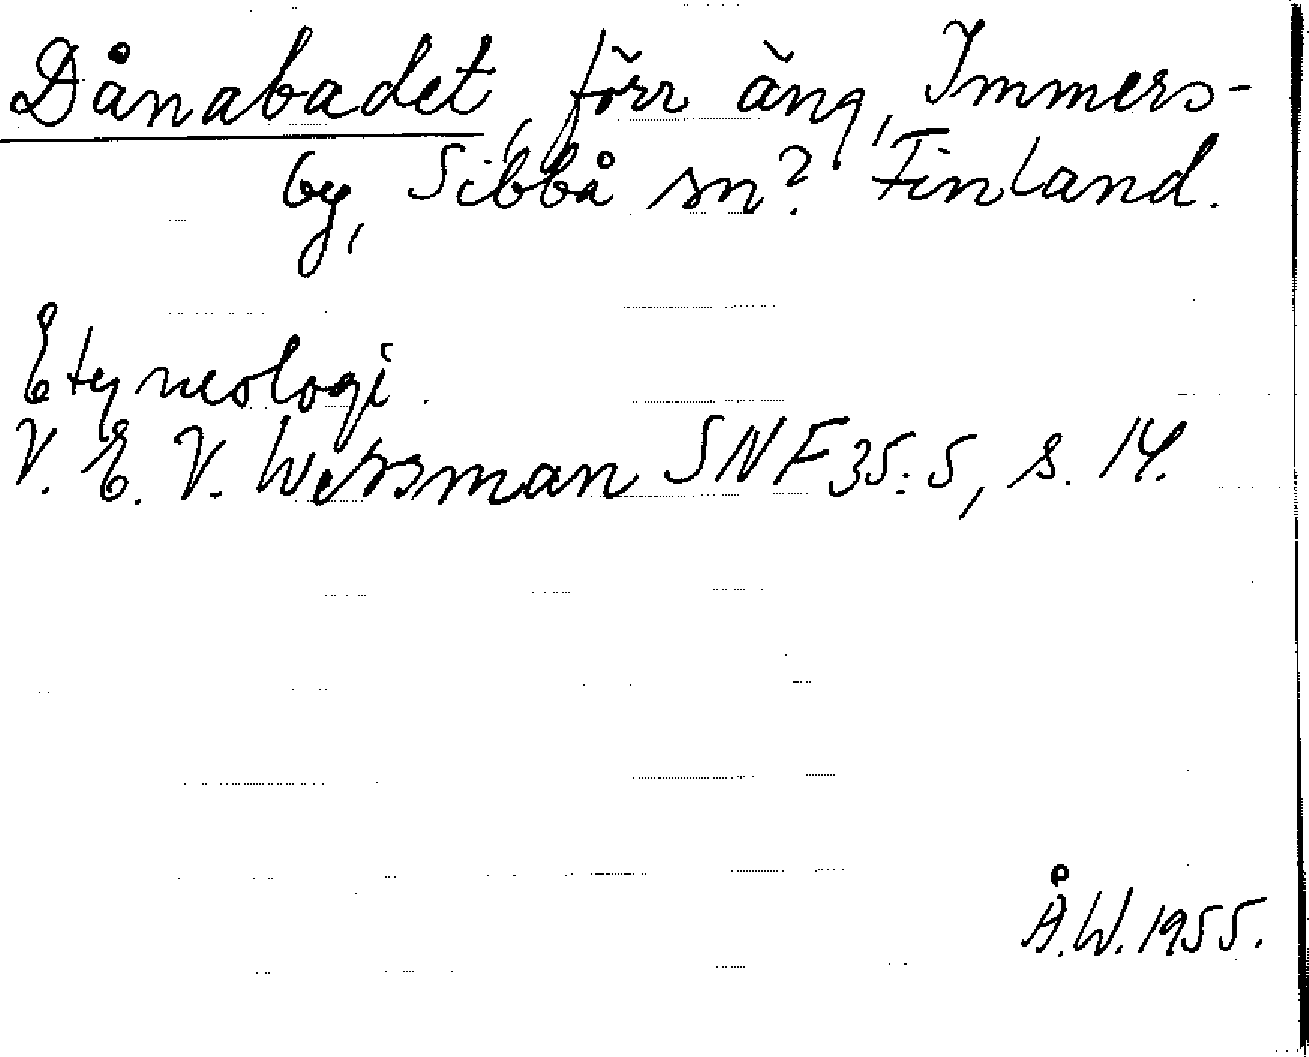 Dånabadet, förr äng, Immers-
by, Sibbå sn? Finland.
Etymologi.
V. E. V. Wessman SNF 35:5, s. 14.
Å.W. 1955.